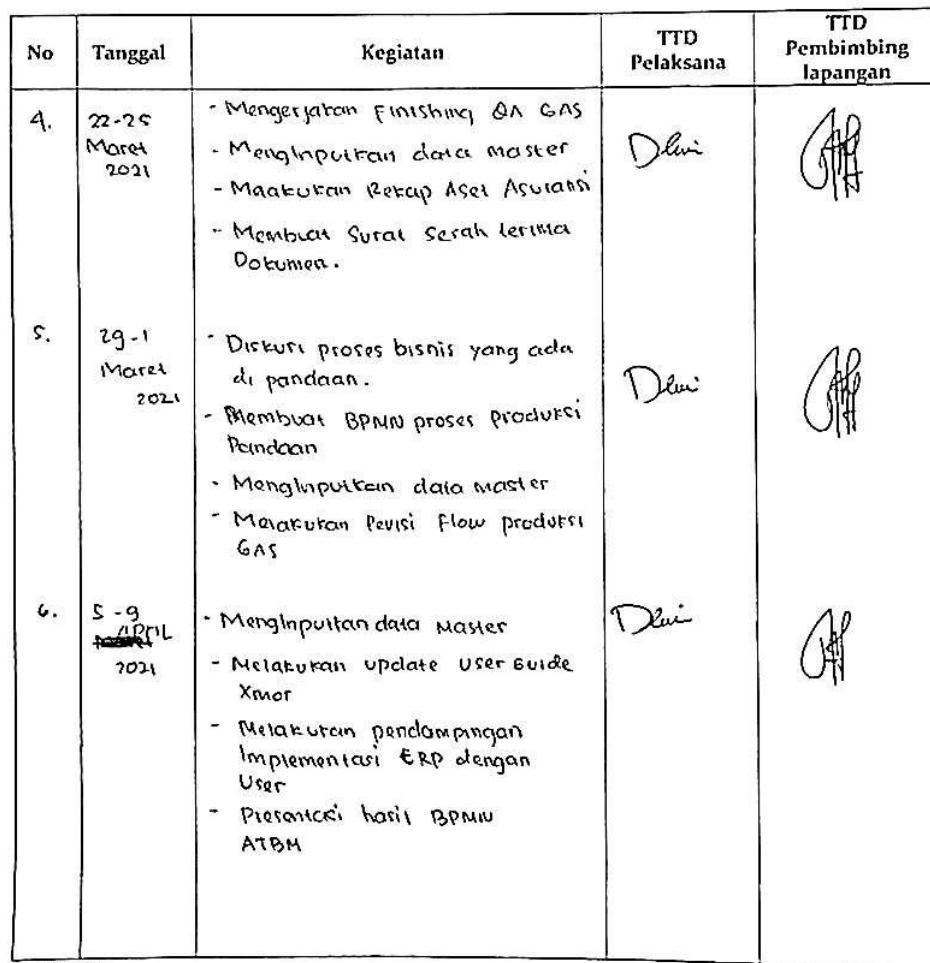 No Tanggal Kegiatan TTD Pelaksana TTD Pembimbing lapangan
4. 22-25 Maret 2021
- Mengerjakan Finishing QA GAS
- Menginputkan data master
- Maakukan Rekap Aset Asuransi
- Membuat Surat Serah terima
Dokumen.
Dewi
5. 29-1 Maret 2021
- Diskusi proses bisnis yang ada
di pandaan.
- Membuat BPMN proses Produksi
Pandaan
- Menginputkan data master
- Melakukan Revisi Flow produksi
GAS
Dewi
6. 5-9 APRIL 2021
- Menginputkan data Master
- Melakukan update User Guide
Xmor
- Melakukan pendampingan
Implementasi ERP dengan
User
- Presentasi hasil BPMN
ATBM
Dewi